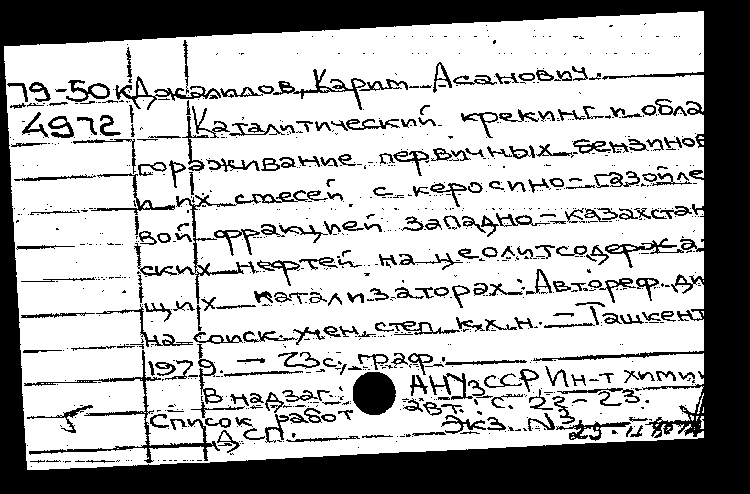 79-50к Джалилов, Карим Асанович.
4972 Каталитический крекинг и обла
гораживание первичных бензинов
и их смесей с керосино-газойле
вой фракцией западно-казахстан
ских нефтей на цеолитсодержа-
щих катализаторах: Автореф. ди
на соиск. учен. степ. к.х.н. - Ташкент
1979. - 23с., граф.
В надзаг.: АНУзССР Ин-т химии
Список работ авт.: с. 22-23.
ДСП. Экз. N3